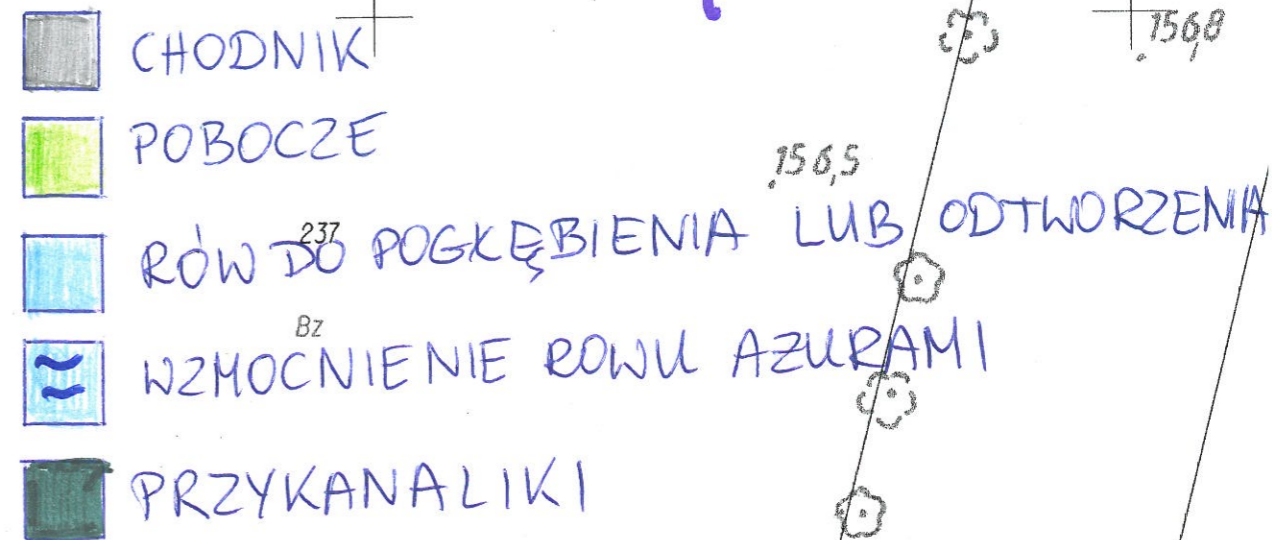 CHODNIK
156,8
POBOCZE
156,5
RÓW DO POGŁĘBIENIA LUB ODTWORZENIA
237
Bz
WZMOCNIENIE ROWU AŻURAMI
PRZYKANALIKI